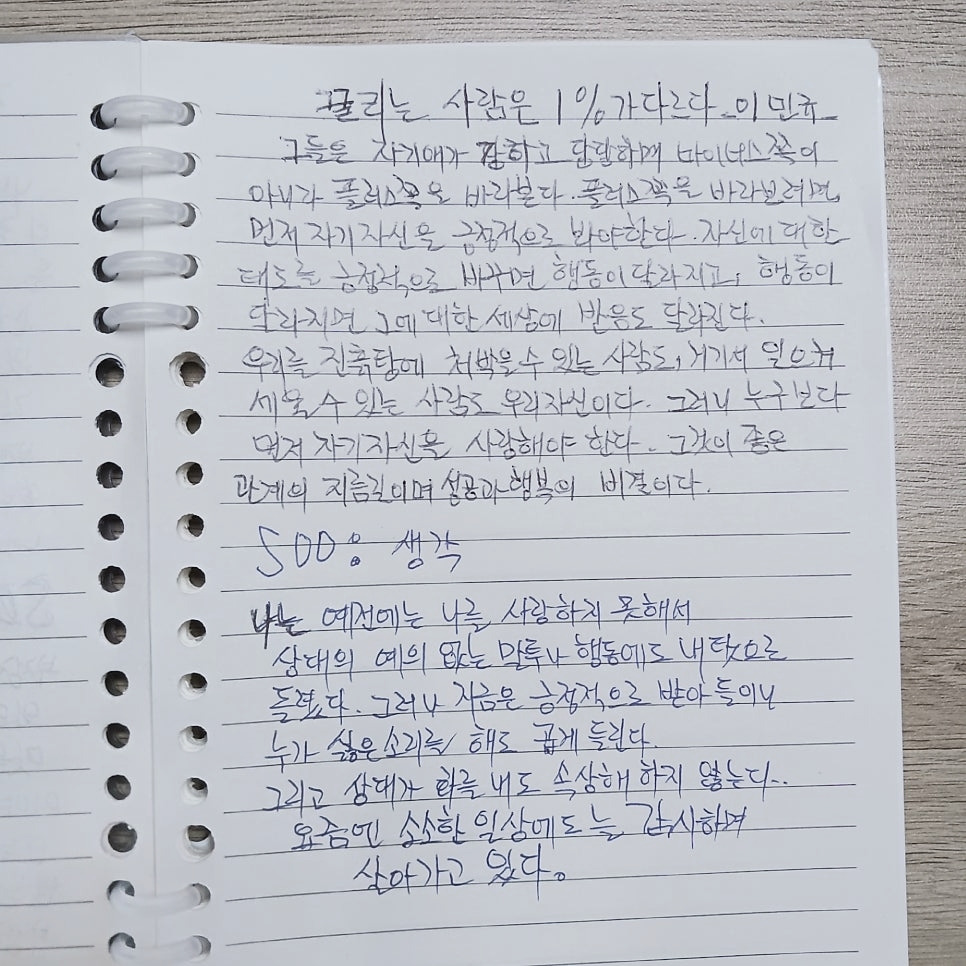 끌리는 사람은 1%가 다르다 - 이민규
그들은 자기애가 강하고 당당하게 마이너스쪽이
아니라 플러스쪽을 바라본다. 플러스쪽을 바라보려면,
먼저 자기 자신을 긍정적으로 봐야한다. 자신에 대한
태도를 긍정적으로 바꾸면 행동이 달라지고, 행동이
달라지면 그에 대한 세상에 반응도 달라진다.
우리를 진흙탕에 처박을 수 있는 사람도, 거기서 일으켜
세울 수 있는 사람도 우리 자신이다. 그러니 누구보다
먼저 자기 자신을 사랑해야 한다. 그것이 좋은
관계의 지름길이며 성공과 행복의 비결이다.
500 : 생각
나는 예전에는 나를 사랑하지 못해서
상대의 예의 없는 말투나 행동에도 내 탓으로
돌렸다. 그러나 지금은 긍정적으로 받아 들이니
누가 싫은소리를 해도 곱게 들린다.
그리고 상대가 화를 내도 속상해 하지 않는다..
요즘엔 소소한 일상에도 늘 감사하며
살아가고 있다.